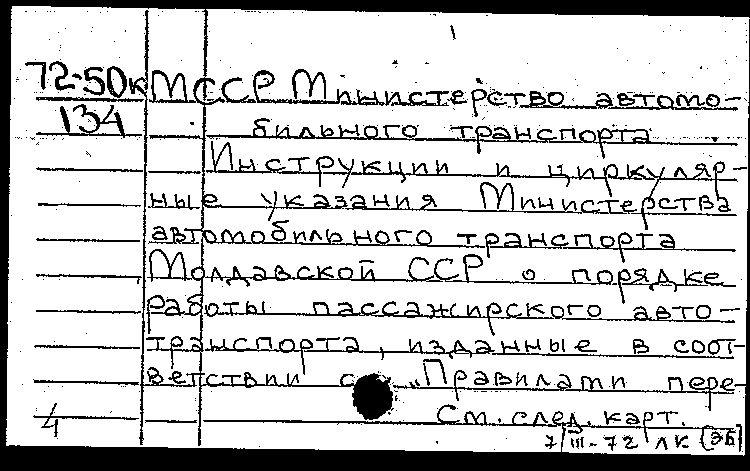 72-50к МССР Министерство автомо-
134 бильного транспорта.
Инструкции и циркуляр-
ные указания Министерства
автомобильного транспорта
Молдавской ССР о порядке
работы пассажирского авто-
транспорта, изданные в соот-
ветствии с „Правилами пере-
4 См. след. карт.
7/III-72 ЛК [ЭБ]